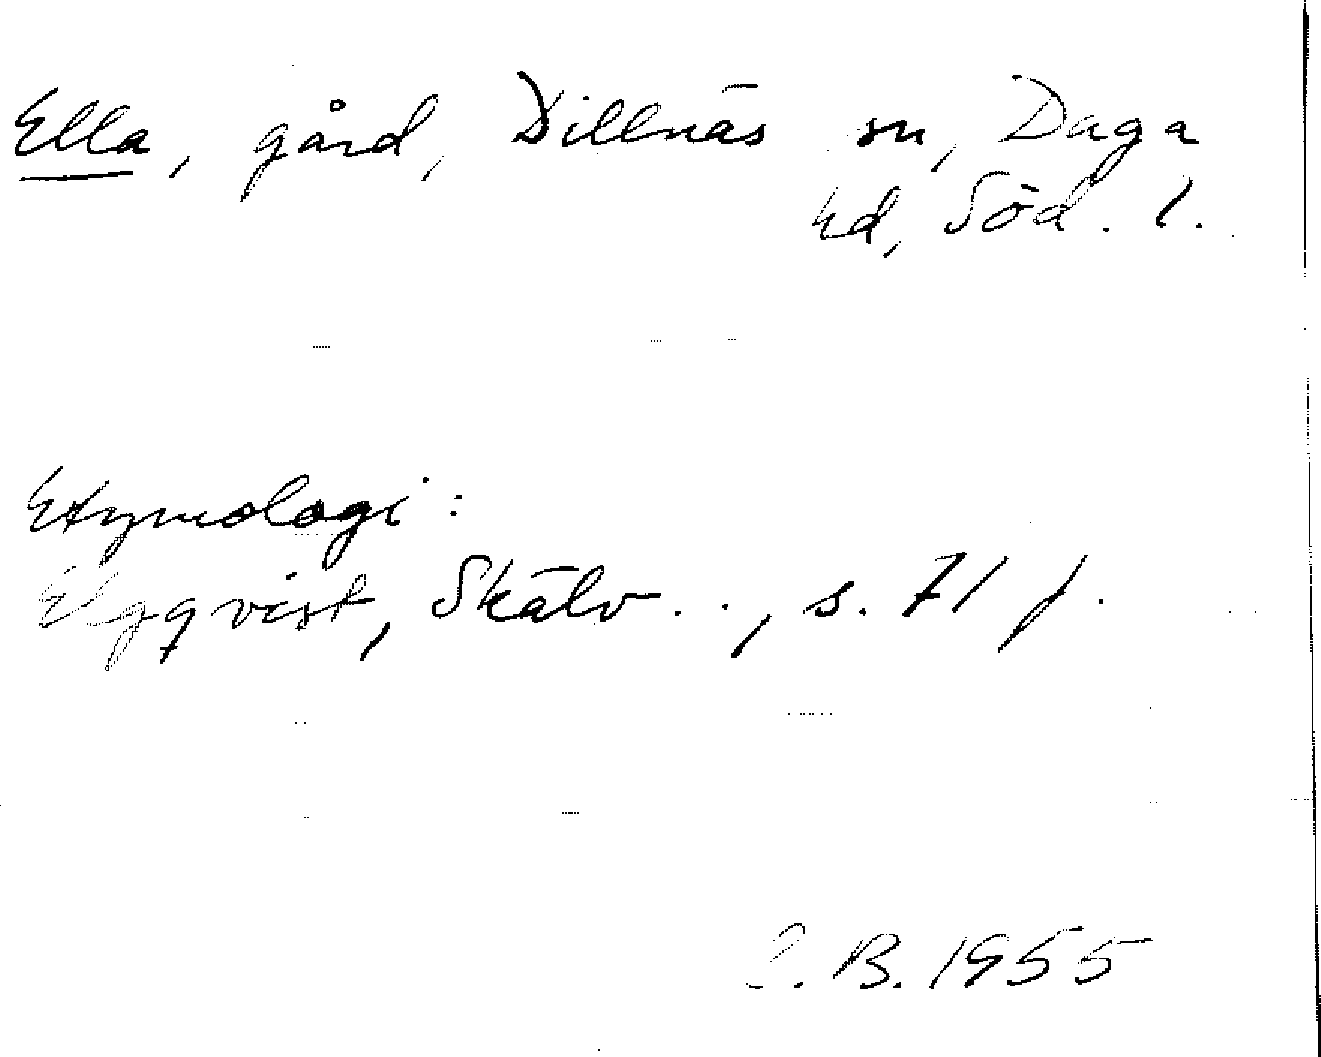 Ella, gård, Dillnäs sn, Daga
hd, Söd. l.
Etymologi:
Elgqvist, Skälv..., s. 71 f.
B. 1955